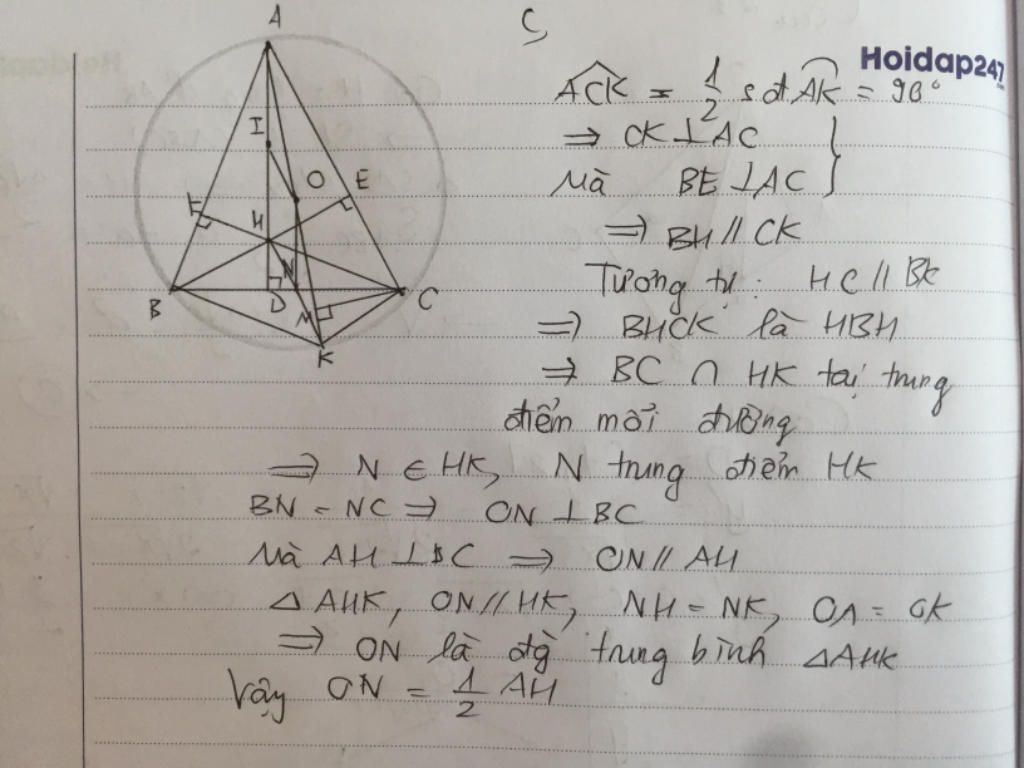 C,
Hoidap247
ACK = 1/2 sđ AK = 90°
⇒ CK ⊥ AC
Mà BE ⊥ AC
⇒ BH // CK
Tương tự : HC // BK
⇒ BHCK là HBH
⇒ BC ∩ HK tại trung
điểm mỗi đường
⇒ N ∈ HK, N trung điểm HK
BN = NC ⇒ ON ⊥ BC
Mà AH ⊥ BC ⇒ ON // AH
Δ AHK, ON // HK, NH = NK, OA = OK
⇒ ON là đg trung bình ΔAHK
Vậy ON = 1/2 AH
A
I
O E
F H
B D N C
M
K